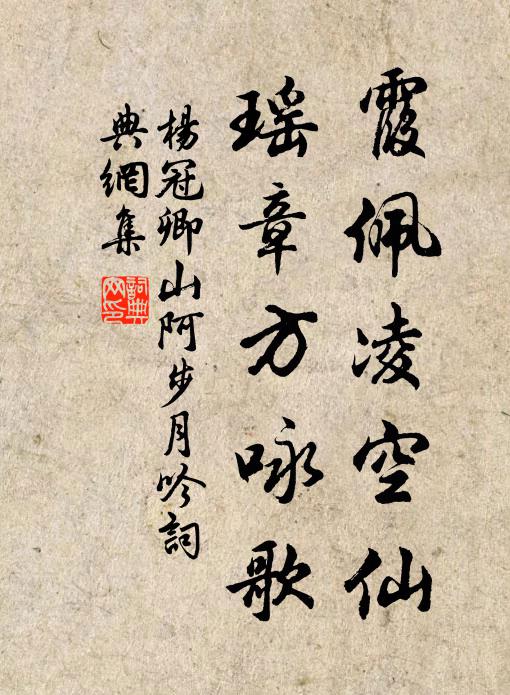 霞佩凌空仙
瑶章方咏歌
楊冠卿山阿步月吟詞
典網集
詞典網印